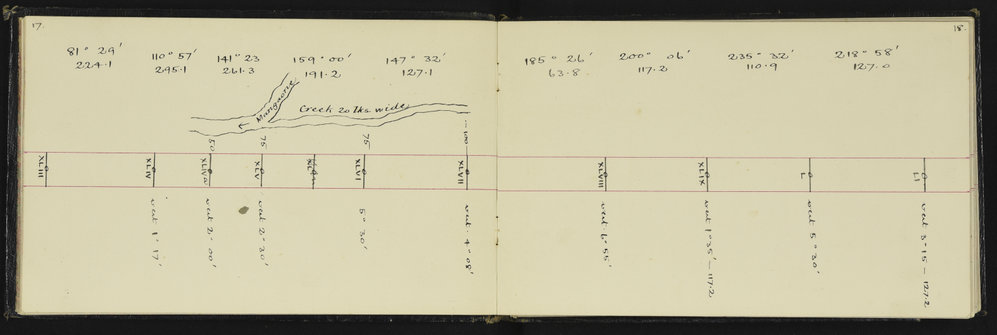 17.
81° 29′
224.1
110° 57′
295.1
141° 23
261.3
159° 00′
191.2
147° 32′
127.1
Creek 20 lks wide
50
75
75
100
XLIII
XLIV
XLIVa
XLV
XLVI
XLVII
vert 1° 17′
vert 2° 00′
vert 2° 30′
5° 30′
vert. 4° 08′
18.
185° 26′
63.8
200° 06′
117.2
235° 32′
110.9
218° 58′
127.0
XLVIII
XLIX
L
LI
vert 6° 55′
vert 1° 35′ — 117.2
vert 5° 30′
vert 3° 15 — 127.2